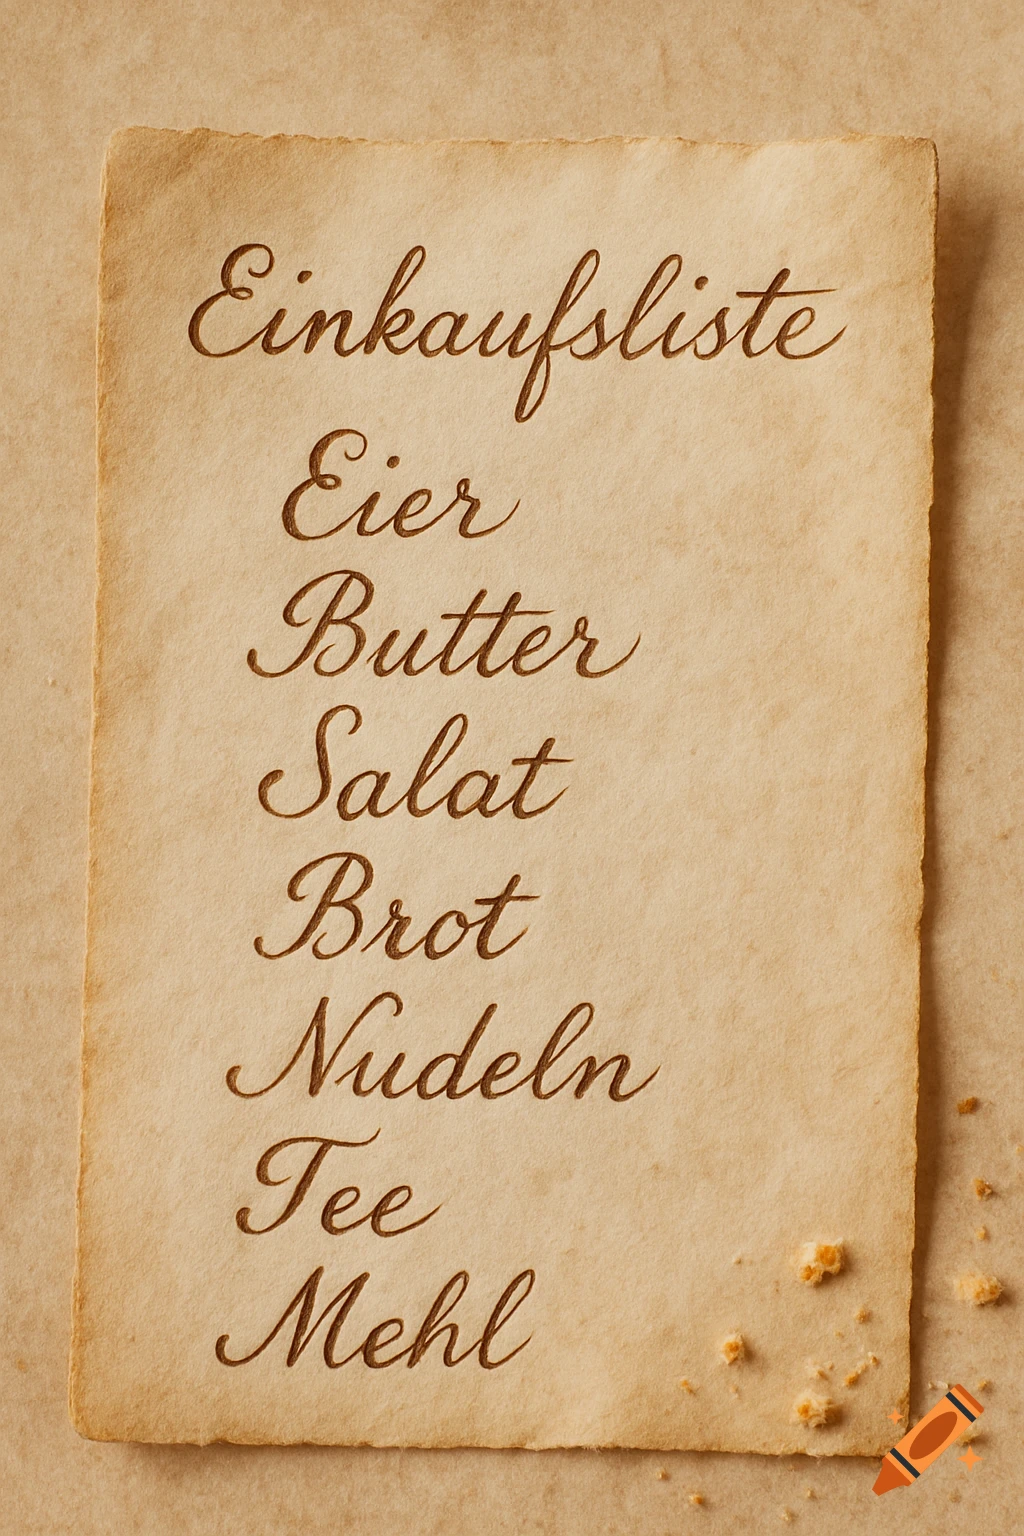 Einkaufsliste
Eier
Butter
Salat
Brot
Nudeln
Tee
Mehl